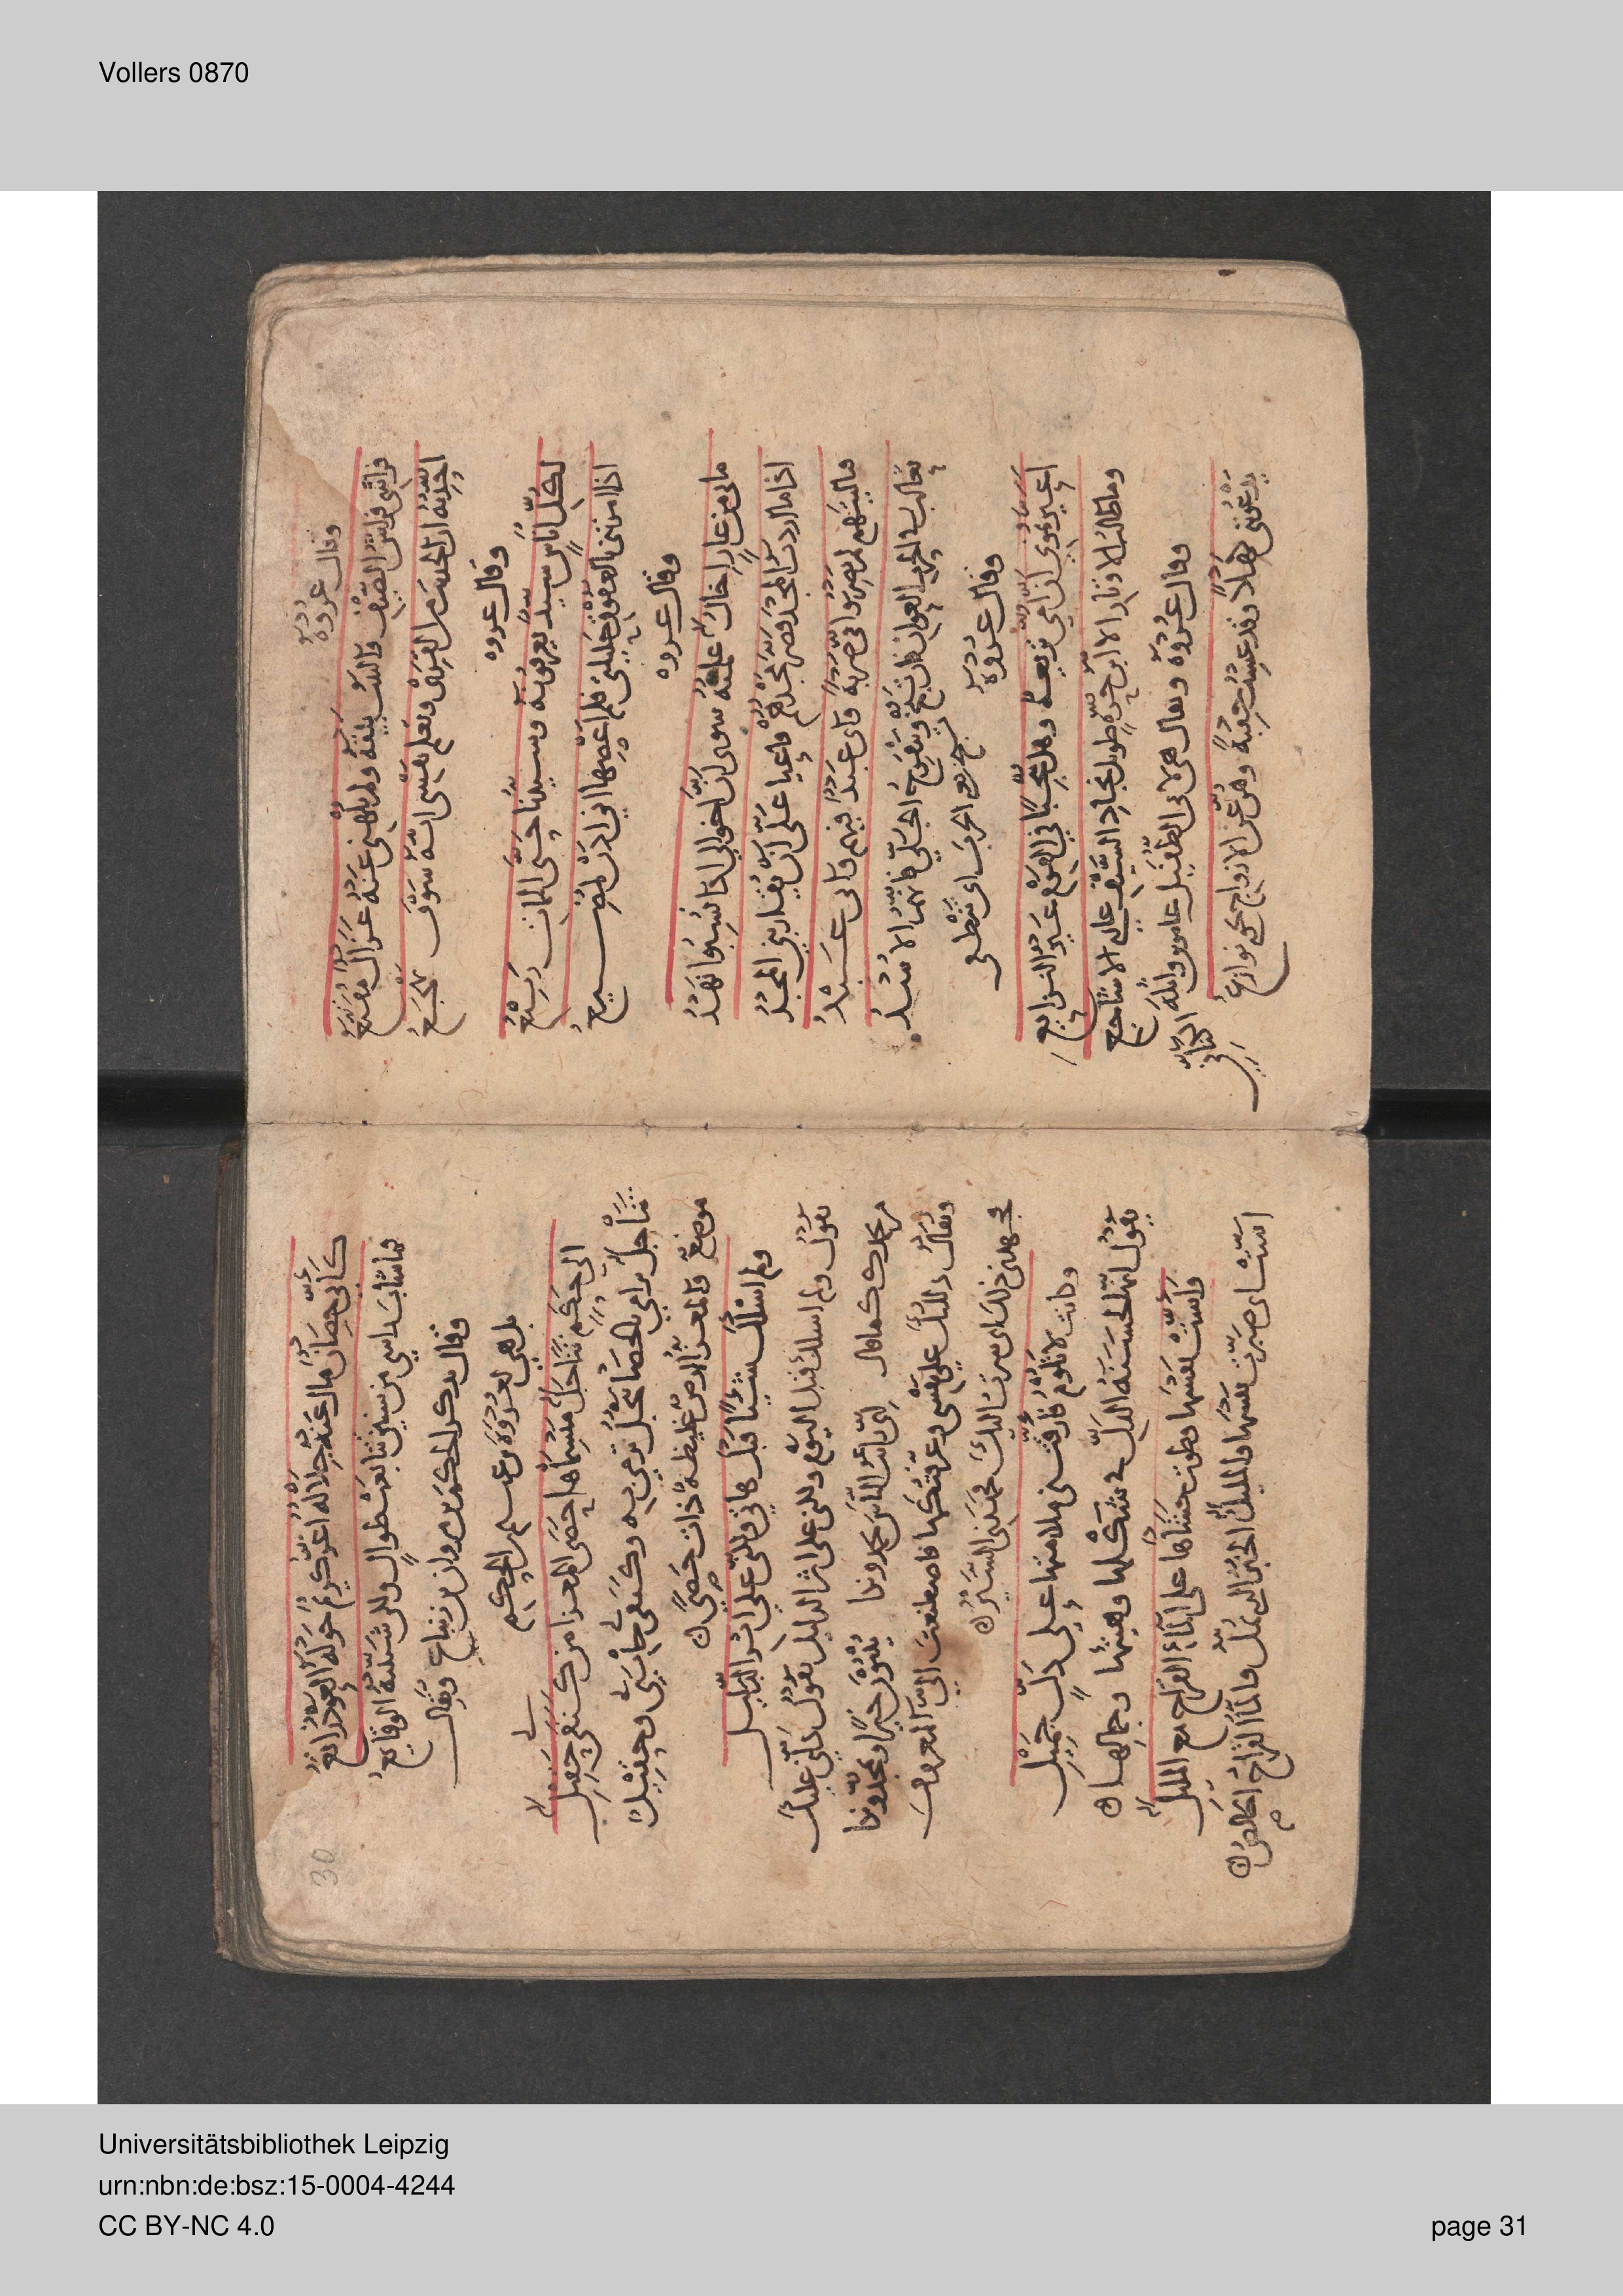 Vollers 0870
وقال عروه
فراشي فراش الضيف والبيت بيته ولم يلهني عنه غزال مقنع
احدثه ان الحديث من القرى وتعلم نفسي انه سوف يهجع
وقال عروه
لكل اناس سيد يعرفونه وسيدنا حتى الممات ربيع
اذا امرتني بالعقوق حليلتي فلم اعصها اني اذن لمضيع
وقال عروه
ما بي من عار اخال علمته سوى ان اخوالي اذا نسبوا نهد
اذا ما اردت المجد قصر مجدهم فاعيا علي ان يقاربني المجد
فيا ليتهم لم يضربوا في ضربة واني عبد فيهم وابي عبد
ثعالب في الحرب العوان فان تبخ وتنفرج الجلى فانهم الاسد
تبخ من الحرب اي تنطفي
وقال عروه
اعيرتموني ان امي نزيعة وهل ينجبن في القوم غير النزايع
وما طالب الاوتار الا ابن حرة طويل نجاد السيف عاري الاشاجع
وقال عروه ويقال هي لابي الطفيل عامر بن واثلة الكناني
يدعونني كهلا وقد عشت حقبة وهن عن الازواج نحوي نوازع
30
كاني حصان مال عنه جلاله اغر كريم حوله العوذ راتع
فما شاب راسي من سنين تتابعت طوال ولكن شيبته الوقايع
وقال يذكر الحكم بن مروان بن زنباع ويقال
بل هي لعروة
الى حكم تناجل منسماها حصى المعزا من كنفي حقيل
تناجل ترامي بالحصا تنجل ترمي به وكنفي جانبي وحقيل
موضع والمعزا الارض غليظة ذات حصي
ولم اسالك شيئا قبل هاتي ولكني على اثر الدليل
يقول ولم اسالك قبل اليوم ولكني على اثر الدليل يقول دلني عليك
كما قال
ويقال دللتك على نفسي وعرفتكها فاصطنعت الي المعروف
ذلك اي صرت اليك
وكانت لا تلوم فارقتني ملامتها على دل جميل
يقول انها لحسنة الدل في شكلها وهيئتها وجمالها
واست نفسها وطوت حشاها على الماء القراح مع المليل
است اي صبرت نفسها والمليل الخبز الذي يمل والماء القراح الخالص
Universitätsbibliothek Leipzig
urn:nbn:de:bsz:15-0004-4244
CC BY-NC 4.0
page 31